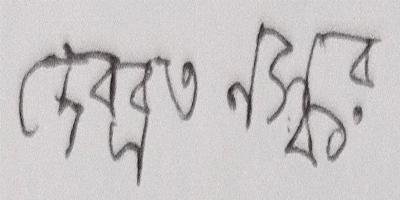 দেবব্রত নস্কর